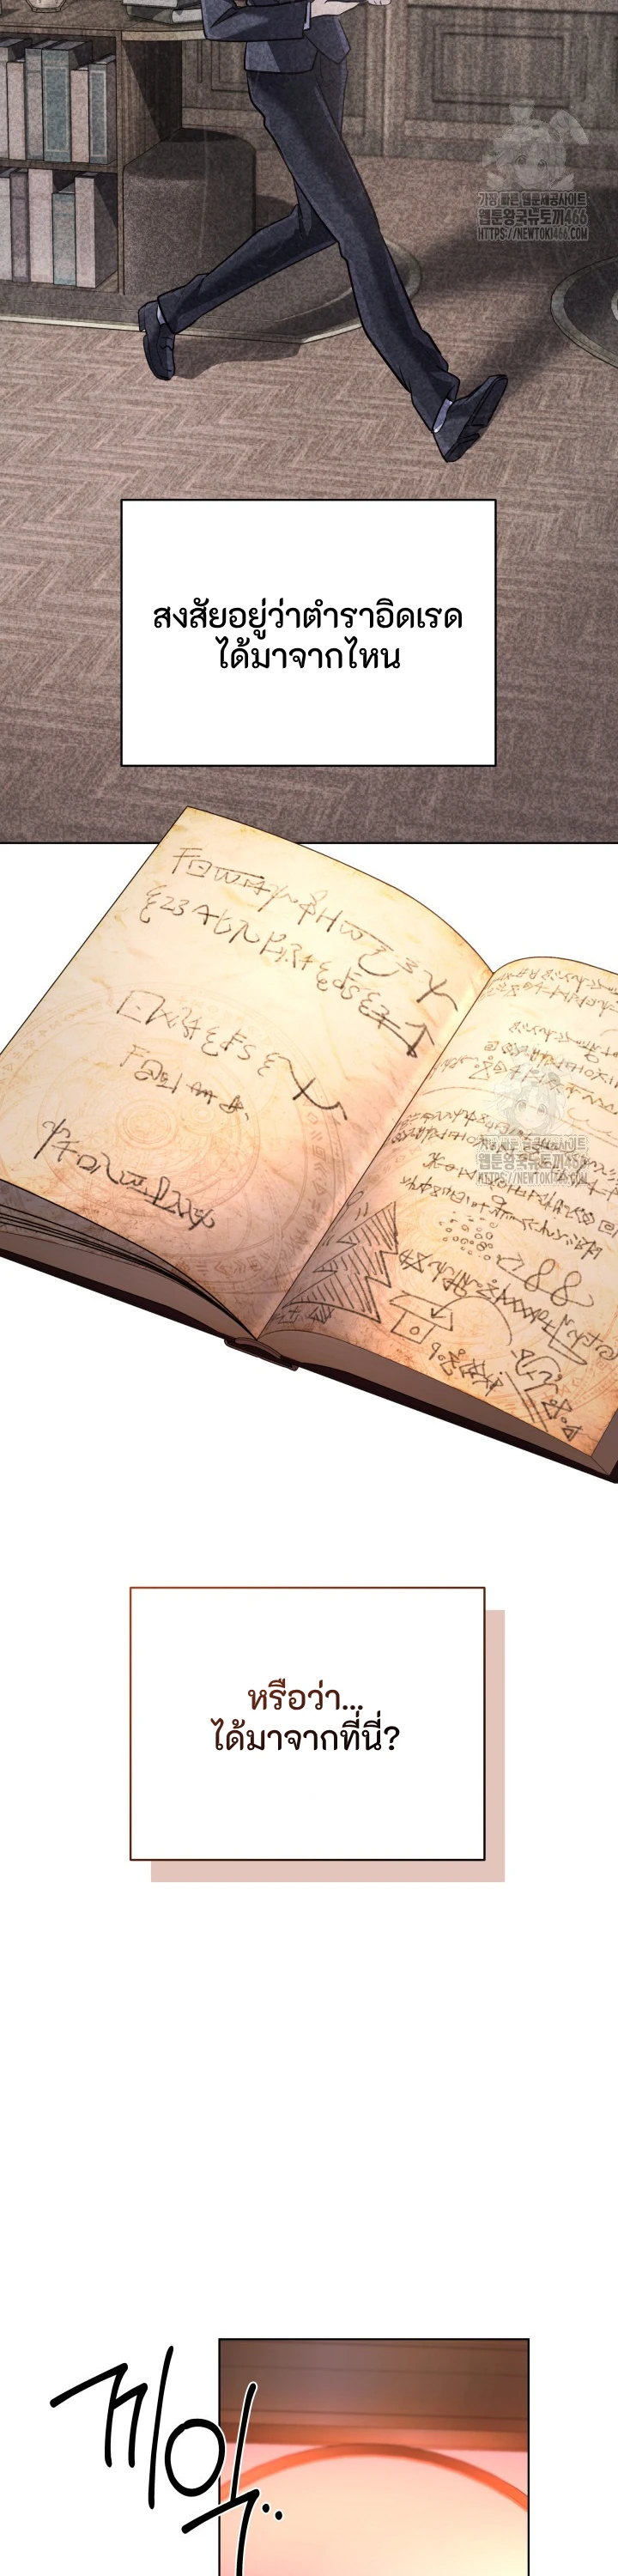 가장 빠른 웹툰제공사이트
웹툰왕국뉴토끼466
HTTPS://NEWTOKI466.COM
สงสัยอยู่ว่าตำราอิดเรด
ได้มาจากไหน
가장 빠른 웹툰제공사이트
웹툰왕국뉴토끼466
HTTPS://NEWTOKI466.COM
หรือว่า...
ได้มาจากที่นี่?
끼이